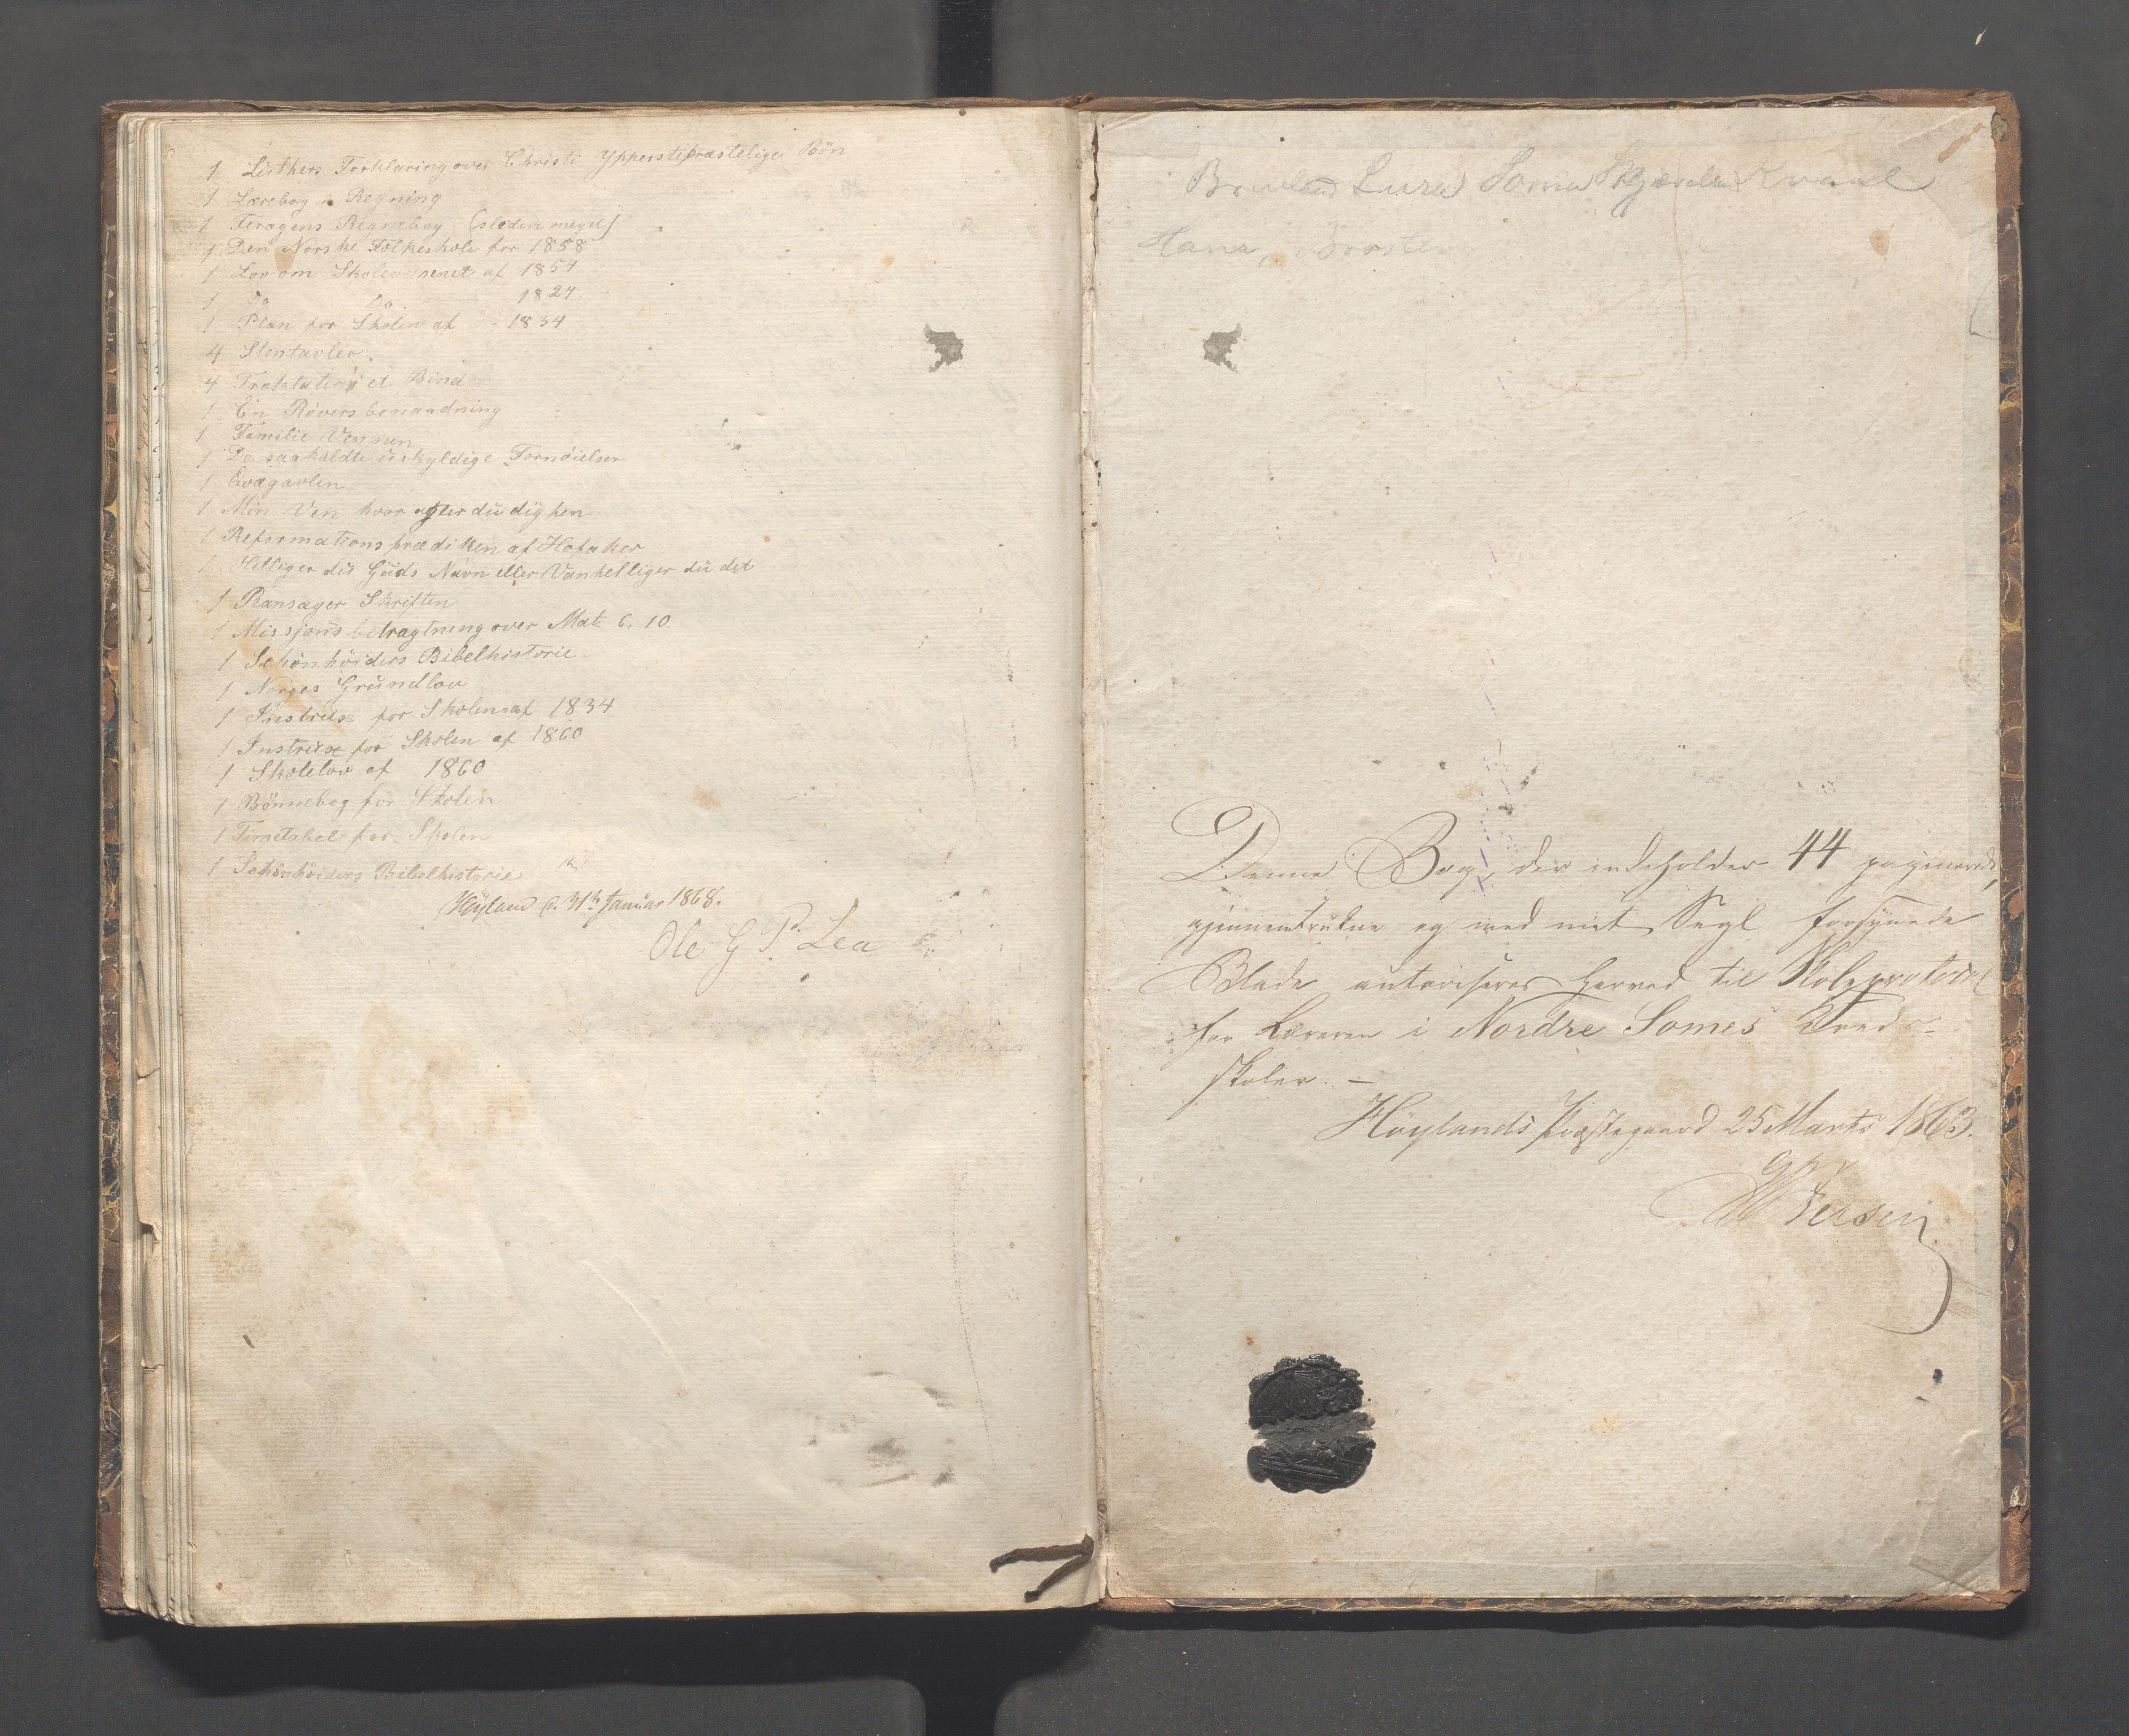 1 Luthers Forklaring over Christi Ypperstepræstelige Bön
1 Lærebog i Regning
1 Feragens Regnebog (sledin meget)
1 Den Norske Folkeskole for 1858
1 Lov om Skolevæsenet af 1854
1 Do Do 1824
1 Plan for Skolen af - 1834
4 Stentavler
4 Traktater i et Bind
1 En Røvers benaadning
1 Familie Vennen
1 De saakaldte uskyldige Fornöielser
1 Qvægavlen
1 Min Ven hvor agter du dig hen
1 Reformations prædiken af Hofaker
1 Helliger du Guds Navn eller Vanhelliger du det
1 Ransager Skriften
1 Missjons betragtning over Mat 6. 10
1 Schönhöiders Bibelhistorie
1 Norges Grundlov
1 Instrux for Skolen af 1834
1 Instrux for Skolen af 1860
1 Skolelov af 1860
1 Bönnebog for Skolen
1 Timetabel for Skolen
1 Schönhöiders Bibelhistorie
Höyland d. 31th Januar 1868.
Ole G P. Lea
Lura Soma Kvaal
Hana,
Denne Bog, der indeholder 44 paginerede,
gjennemtrukne og med mit Segl forsynede
Blade autoriseres herved til Skoleprotocol
for Læreren i Nordre Somes Kreds-
skoler. -
Höylands Præstegaard 25 Marts 1863.
Iversen